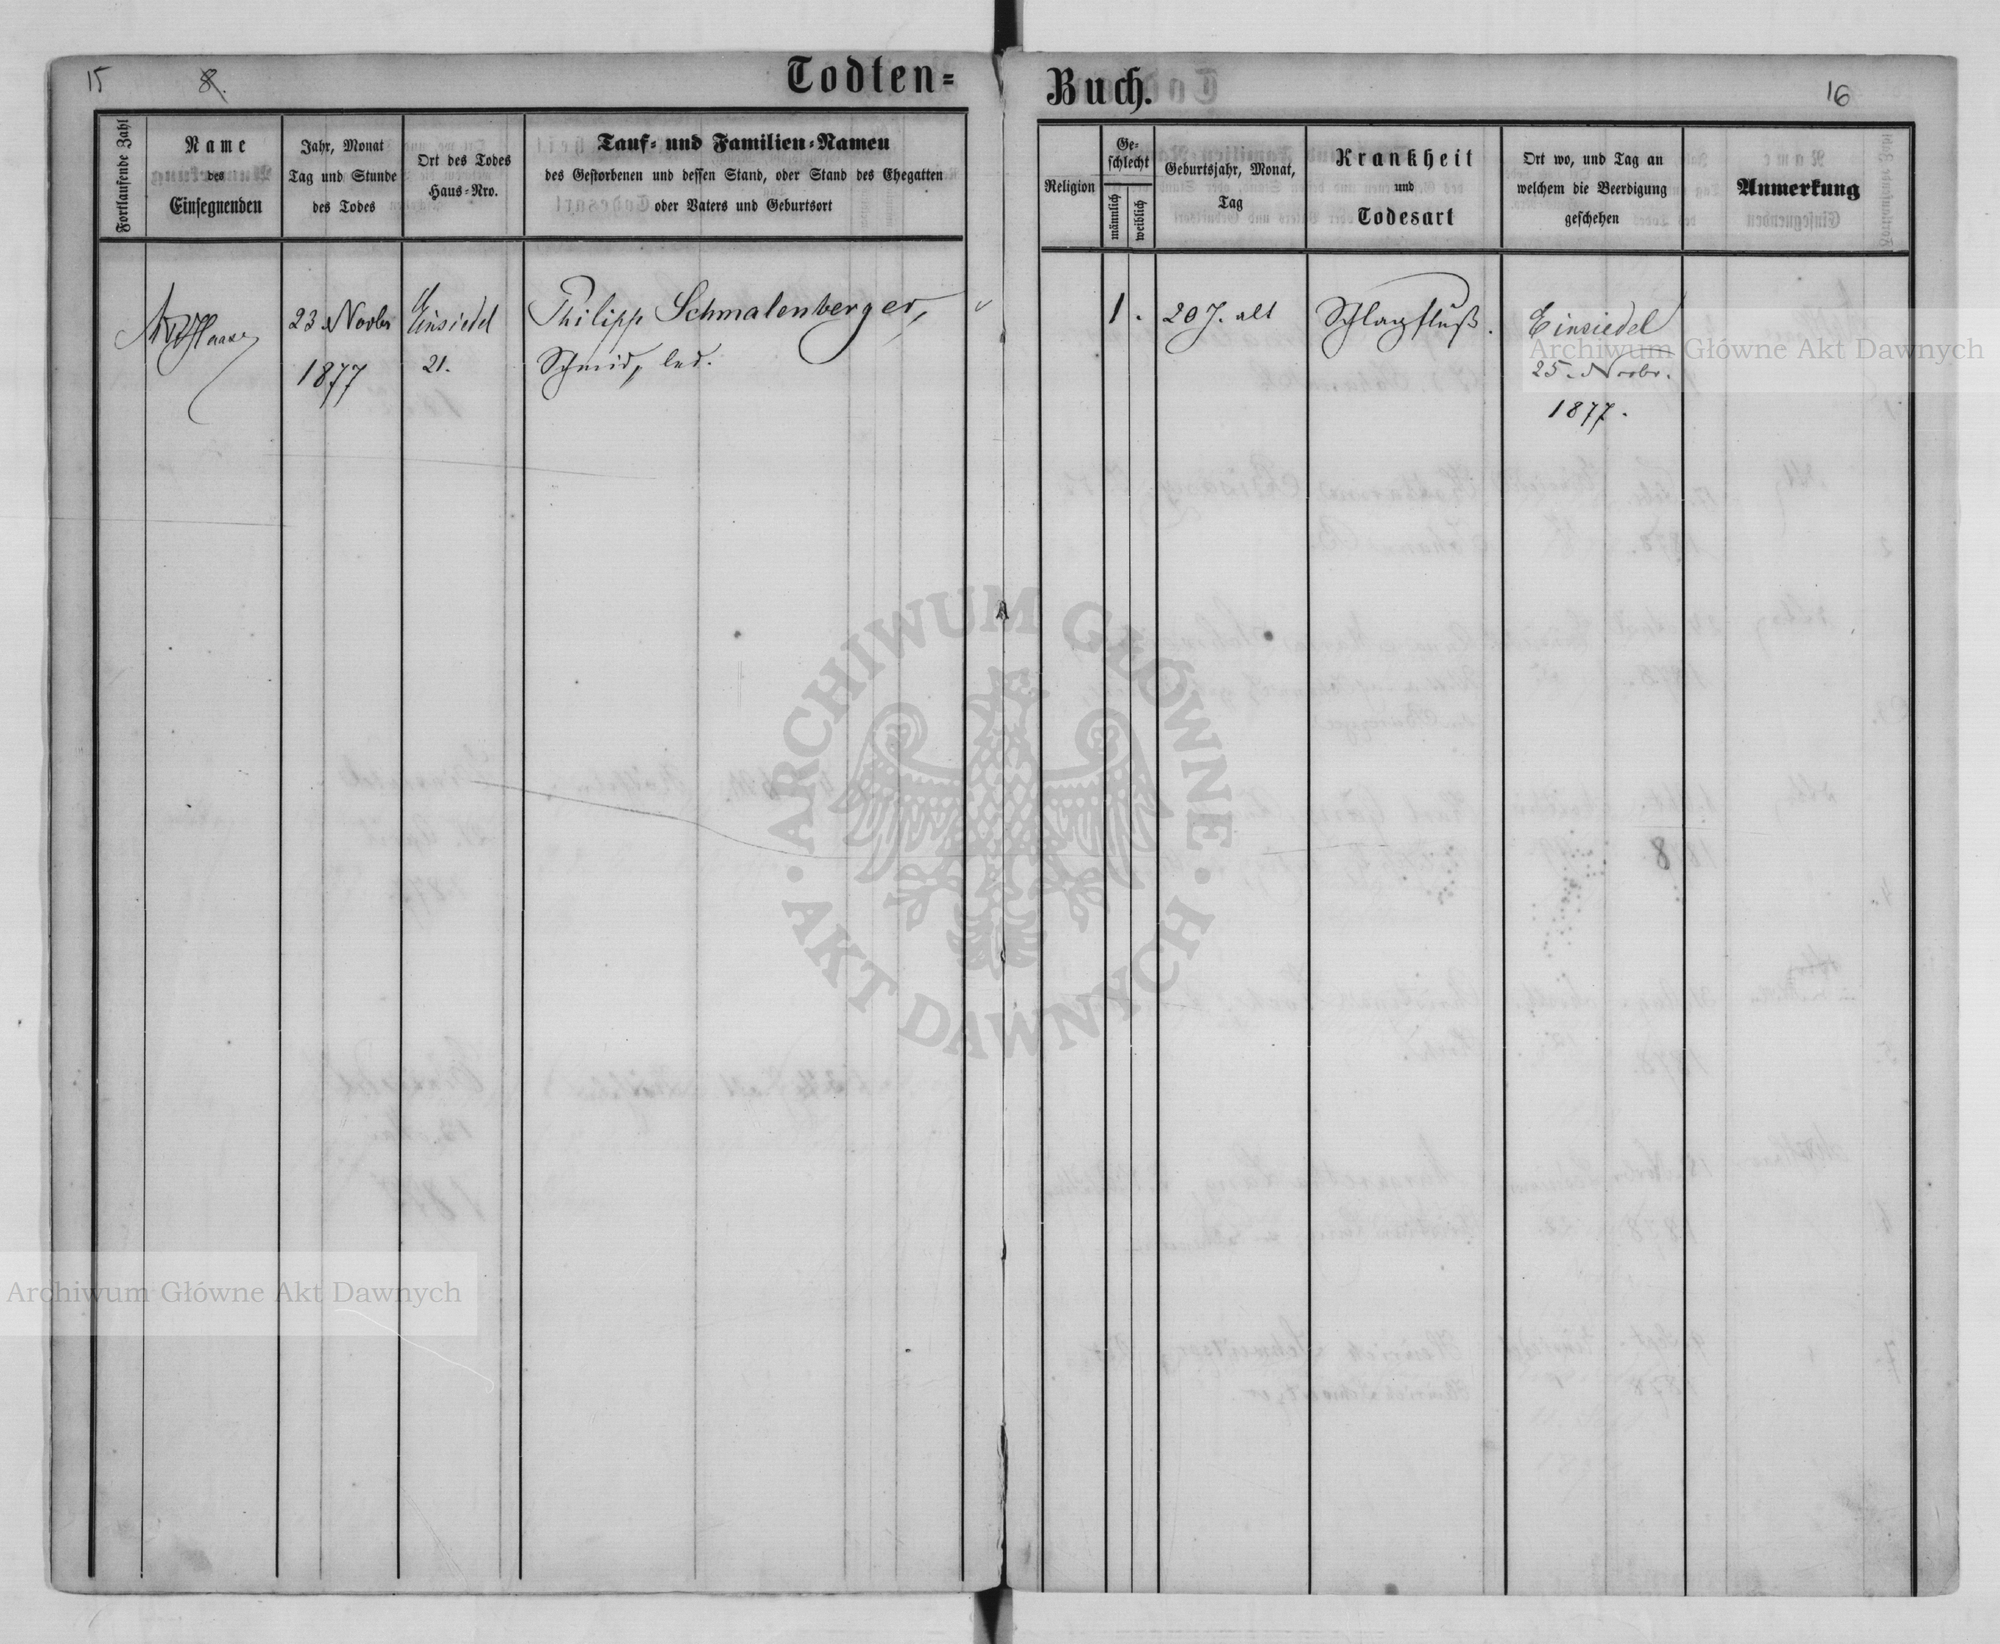 15
8.
Todten=
Buch.
16
Fortlaufende Zahl
Name
des
Einsegnenden
Jahr, Monat
Tag und Stunde
des Todes
Ort des Todes
Haus=Nro.
Tauf= und Familien=Namen
des Gestorbenen und dessen Stand, oder Stand des Ehegatten
oder Vaters und Geburtsort
Religion
Ge=
schlecht
männlich
weiblich
Geburtsjahr, Monat,
Tag
Krankheit
und
Todesart
Ort wo, und Tag an
welchem die Beerdigung
geschehen
Anmerkung
Haase
23 Novbr
1877
Einsiedel
21.
Philipp Schmalenberger,
Schmid, led.
1.
20 J. alt
Schlagfluß.
Einsiedel
25. Novbr.
1877.
Archiwum Główne Akt Dawnych
ARCHIWUM GŁÓWNE
AKT DAWNYCH
Archiwum Główne Akt Dawnych